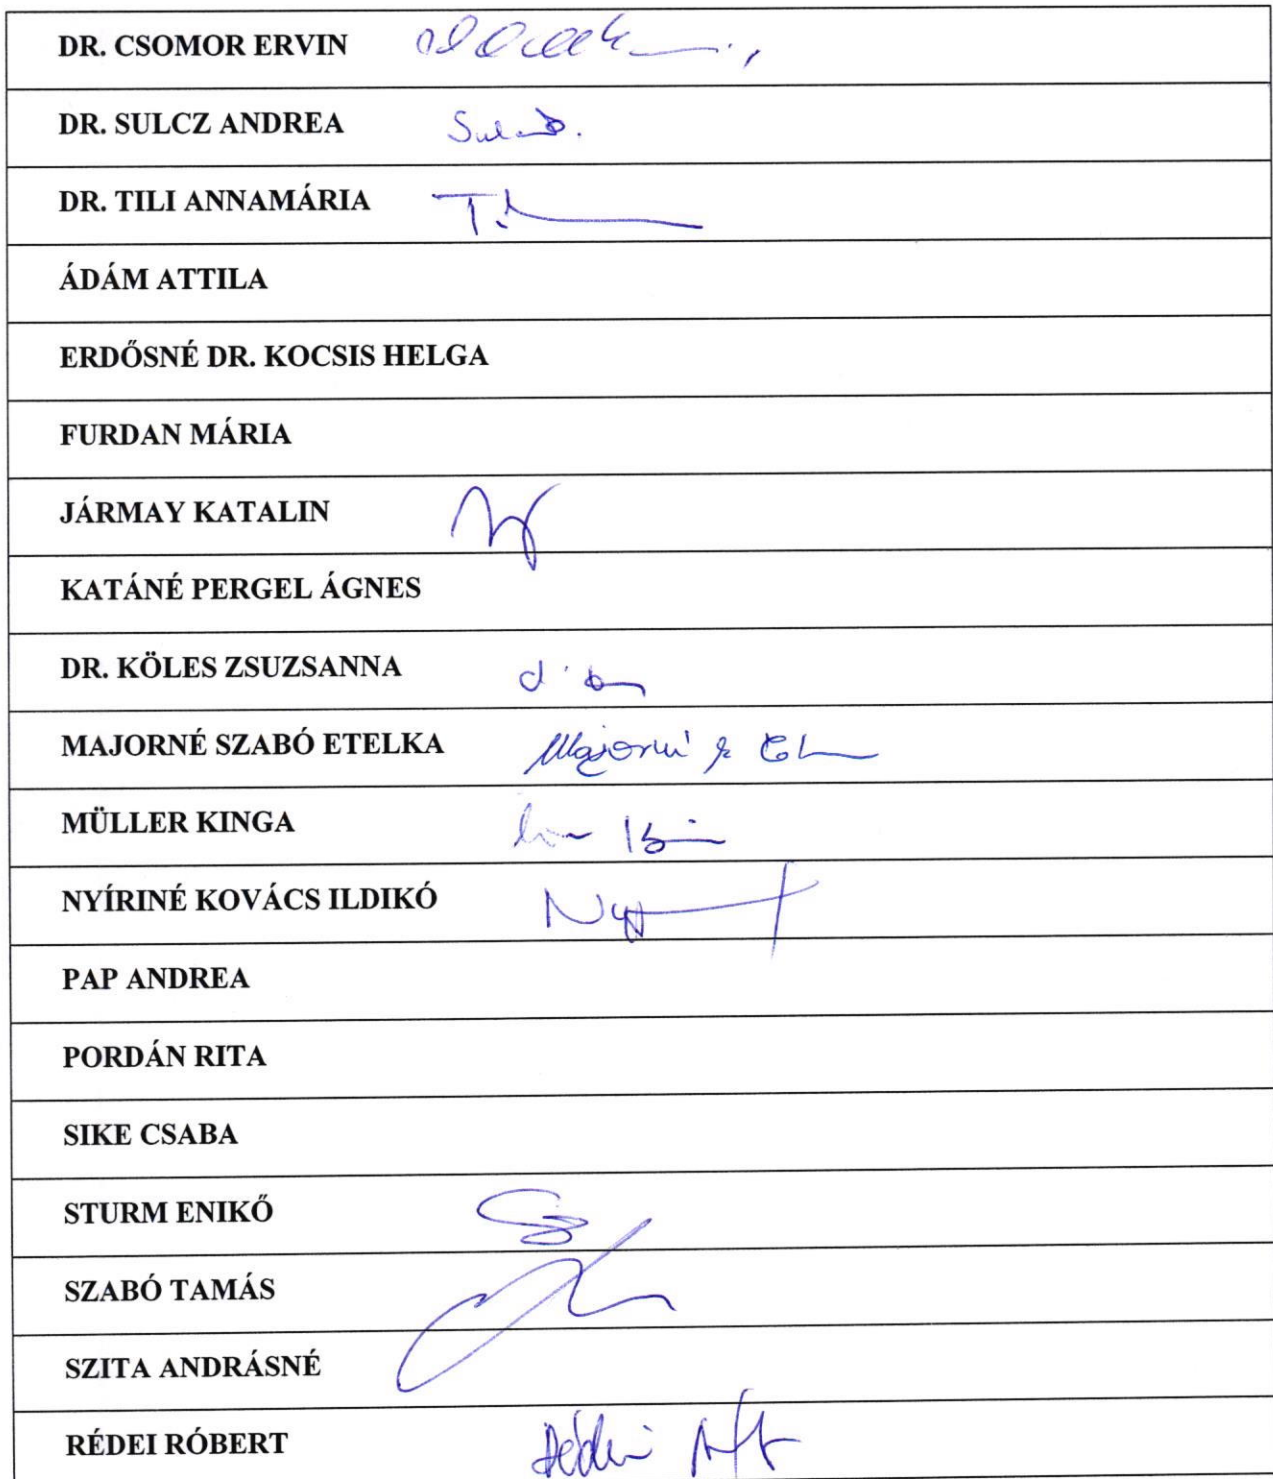 DR. CSOMOR ERVIN
DR. SULCZ ANDREA
DR. TILI ANNAMÁRIA
ÁDÁM ATTILA
ERDŐSNÉ DR. KOCSIS HELGA
FURDAN MÁRIA
JÁRMAY KATALIN
KATÁNÉ PERGEL ÁGNES
DR. KÖLES ZSUZSANNA
MAJORNÉ SZABÓ ETELKA Majorné
MÜLLER KINGA
NYÍRINÉ KOVÁCS ILDIKÓ
PAP ANDREA
PORDÁN RITA
SIKE CSABA
STURM ENIKŐ
SZABÓ TAMÁS
SZITA ANDRÁSNÉ
RÉDEI RÓBERT Rédei